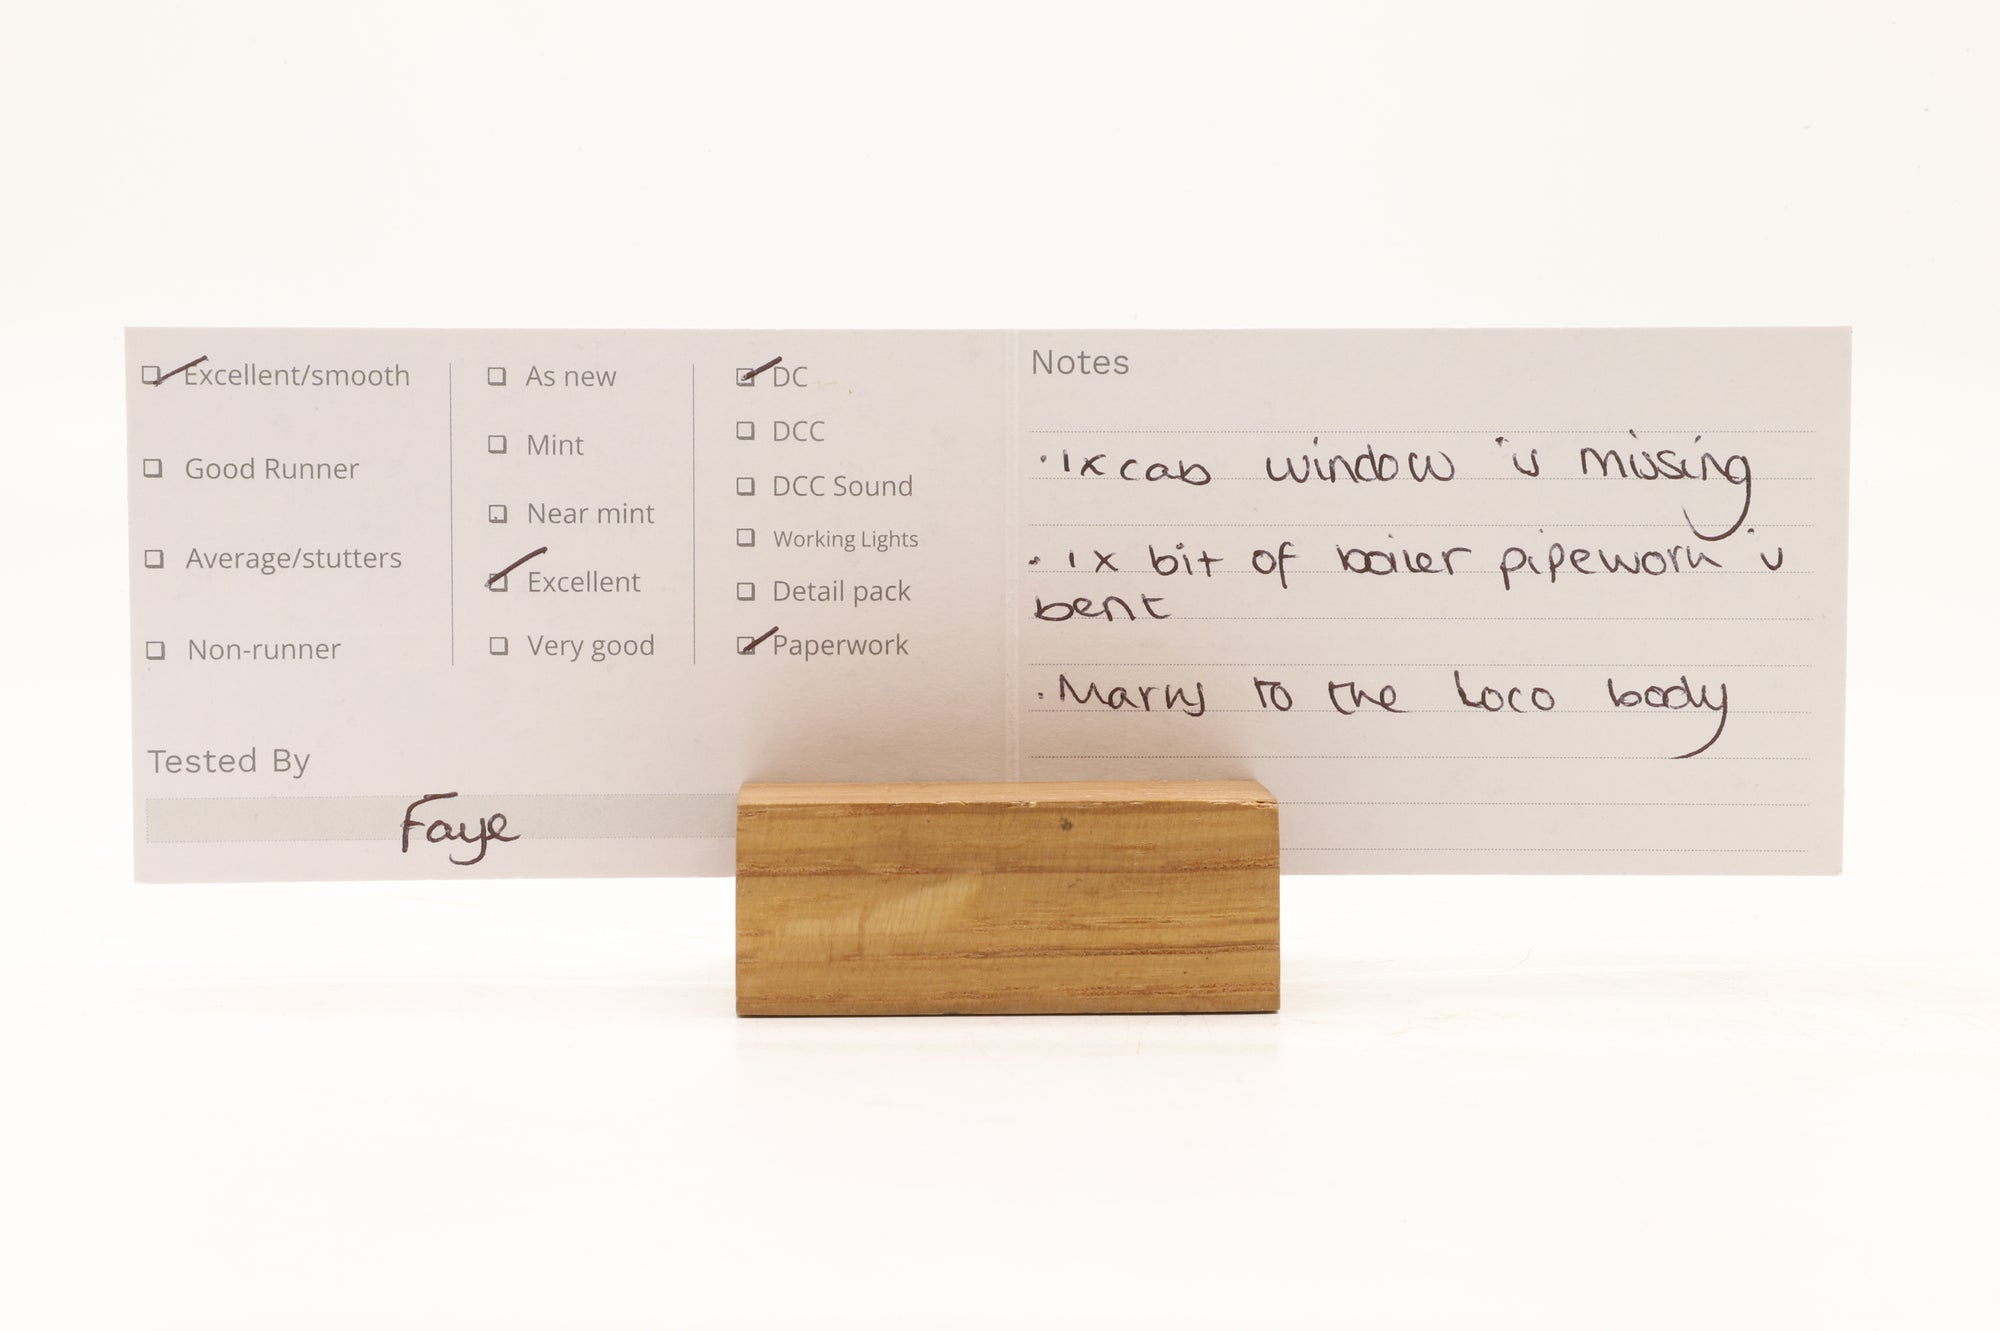 Excellent/smooth
Good Runner
Average/stutters
Non-runner
As new
Mint
Near mint
Excellent
Very good
DC
DCC
DCC Sound
Working Lights
Detail pack
Paperwork
Tested By
Faye
Notes
• 1x cab window is missing
• 1x bit of boiler pipework is
bent
• Marks to the Loco body